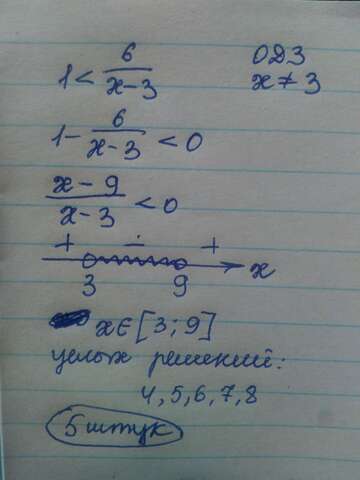 1 < 6/(x-3) ОДЗ
x ≠ 3
1 - 6/(x-3) < 0
(x-9)/(x-3) < 0
+ - +
3 9 x
x ∈ [3; 9]
целых решений:
4, 5, 6, 7, 8
5 штук